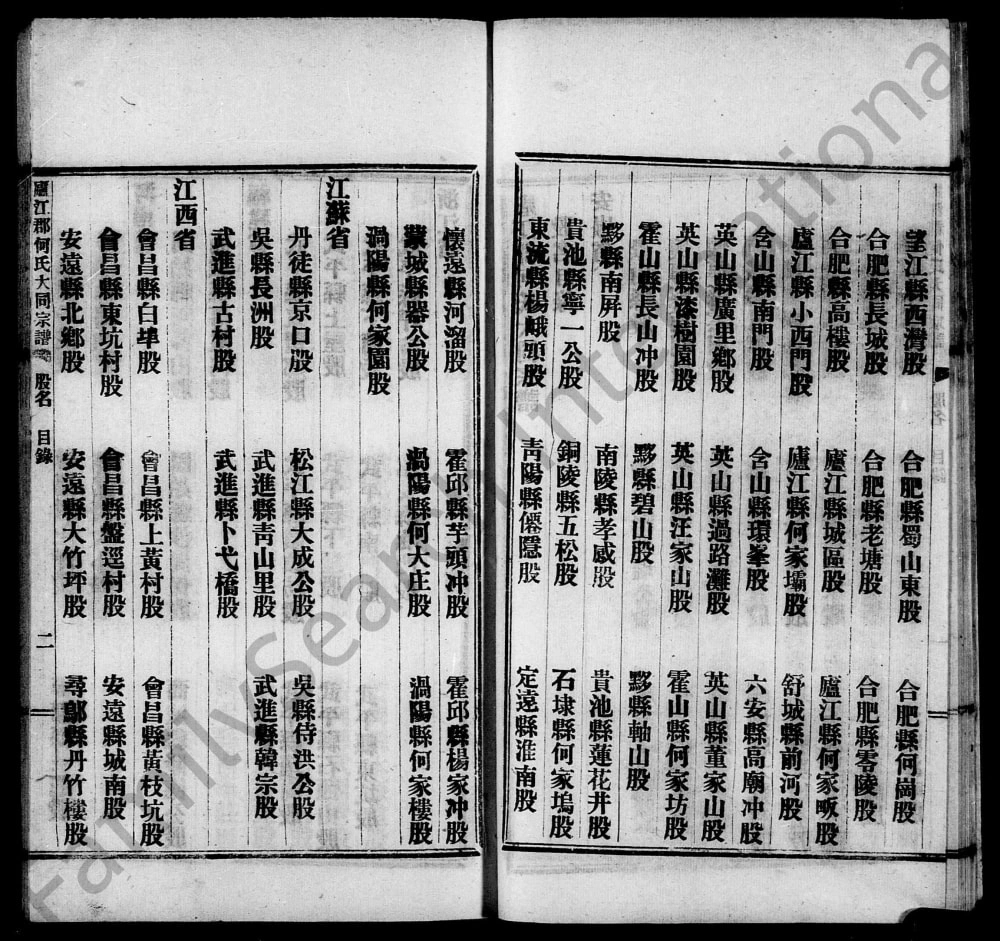 望江縣西灣股　合肥縣蜀山東股　合肥縣何崗股
合肥縣長城股　合肥縣老塘股　合肥縣零陵股
合肥縣高樓股　廬江縣城區股　廬江縣何家畈股
廬江縣小西門股　廬江縣何家壩股　舒城縣前河股
含山縣南門股　含山縣環峯股　六安縣高廟冲股
英山縣廣里鄉股　英山縣過路灘股　英山縣董家山股
英山縣漆樹園股　英山縣汪家山股　霍山縣何家坊股
霍山縣長山冲股　黟縣碧山股　黟縣軸山股
黟縣南屏股　南陵縣孝感股　貴池縣蓮花井股
貴池縣寧一公股　銅陵縣五松股　石埭縣何家塢股
東流縣楊峨頭股　青陽縣僊隱股　定遠縣淮南股
懷遠縣河溜股　霍邱縣芋頭冲股　霍邱縣楊家冲股
蒙城縣器公股　渦陽縣何大庄股　渦陽縣何家樓股
渦陽縣何家園股
江蘇省
丹徒縣京口股　松江縣大成公股　吳縣侍洪公股
吳縣長洲股　武進縣青山里股　武進縣韓宗股
武進縣古村股　武進縣卜弋橋股
江西省
會昌縣白埠股　會昌縣上黃村股　會昌縣黃枝坑股
會昌縣東坑村股　會昌縣盤逕村股　安遠縣城南股
安遠縣北鄉股　安遠縣大竹坪股　尋鄔縣丹竹樓股
廬江郡何氏大同宗譜　股名　目錄　二
FamilySearch International